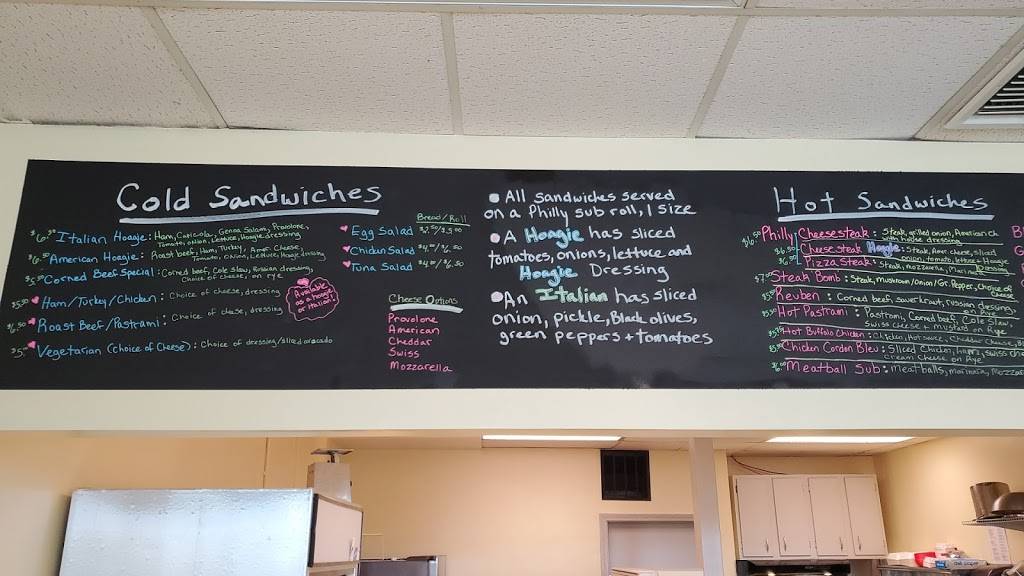 Cold Sandwiches
Italian Hoagie: Ham, Capicola, Genoa Salami, Provolone,
Tomato, onion, Lettuce, Hoagie dressing
American Hoagie: Roast beef, Ham, Turkey, Amer. Cheese,
Tomato, Onion, Lettuce, Hoagie dressing
Corned Beef Special: Corned beef, Cole Slaw, Russian dressing,
Choice of cheese, on rye
Ham/Turkey/Chicken: Choice of cheese, dressing
Roast Beef/Pastrami: Choice of cheese, dressing
Available
as a hoagie
or Italian!
Vegetarian (Choice of Cheese): Choice of dressing/sliced avocado
Bread/Roll
Egg Salad
Chicken Salad
Tuna Salad
Cheese Options
Provolone
American
Cheddar
Swiss
Mozzarella
All sandwiches served
on a Philly sub roll, 1 size
A Hoagie has sliced
tomatoes, onions, lettuce and
Hoagie Dressing
An Italian has sliced
onion, pickle, Black olives,
green peppers + tomatoes
Hot Sandwiches
Philly Cheesesteak: Steak, grilled onion, American ch
dressing
Cheesesteak Hoagie: Steak, Amer Cheese, sliced
onion, tomato, lettuce + Hoagie
Dressing
Pizza Steak: Steak, mozzarella, Marinara
Steak Bomb: Steak, Mushroom/Onion/Gr. Pepper, Choice of
Cheese
Reuben: Corned beef, sauerkraut, russian dressing,
on Rye
Hot Pastrami: Pastrami, Corned beef, Cole Slaw,
Swiss cheese + mustard on Rye
Hot Buffalo Chicken: Chicken, Hot sauce, Cheddar Cheese,
Chicken Cordon Bleu: Sliced Chicken, Ham, Swiss
cream cheese on Rye
Meatball Sub: Meatballs, marinara, Mozza